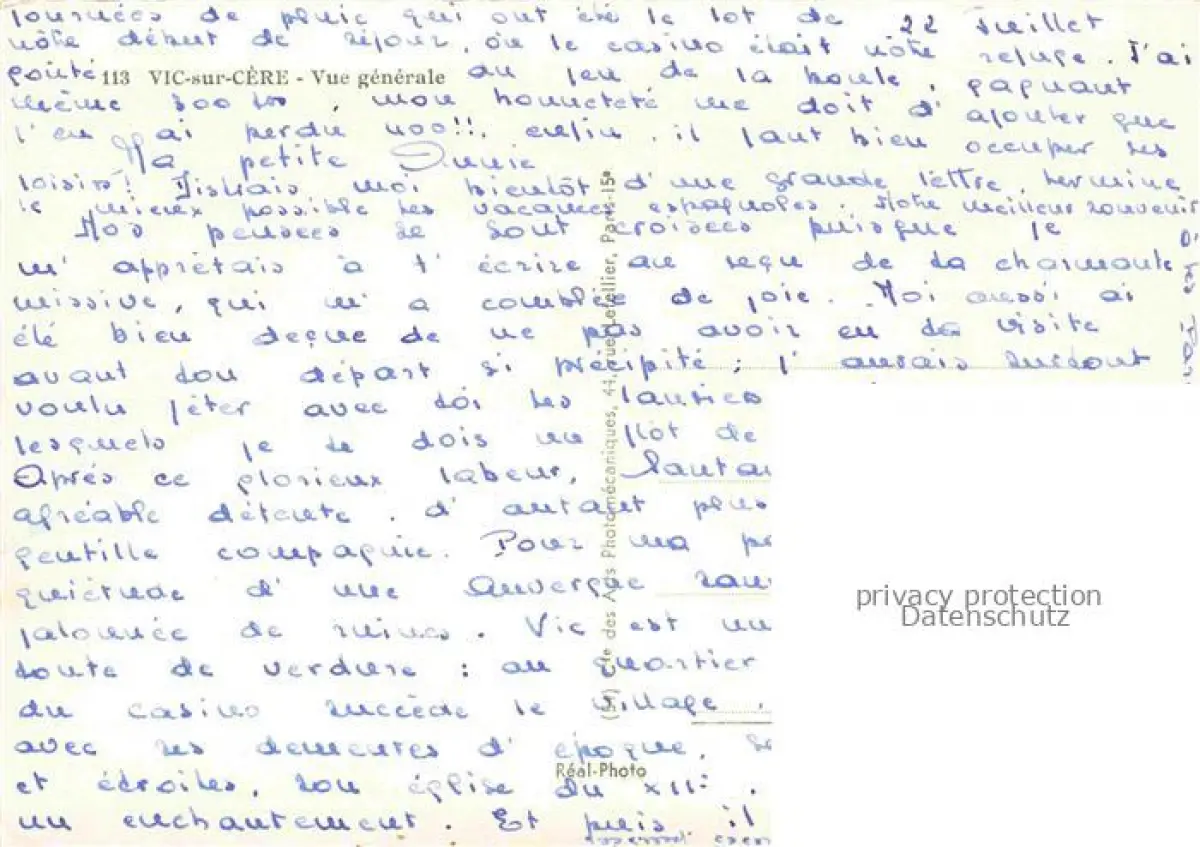 journées de pluie qui ont été le lot de 22 Juillet
nôtre début de séjour, où le casino était nôtre refuge. J'ai
goûté au jeu de la boule, gagnant
113 VIC-sur-CÈRE - Vue générale
même 300 , mon honneteté me doit d'ajouter que
j'en ai perdu 400!!, enfin, il faut bien occuper ses
Ma petite Annie
loisirs! moi bientôt d'une grande lettre, termine
le mieux possible tes vacances espagnoles. Notre meilleur souvenir
Nos pensées se sont croisées puisque je
m'apprêtais à t'écrire au reçu de ta charmante
missive, qui m'a comblée de joie. Moi aussi ai
été bien deçue de ne pas avoir eu ta visite
avant ton départ si précipité ; j'aurais surtout
voulu fêter avec toi tes lauriers
lesquels je te dois un flot de
Après ce glorieux labeur,
agréable détente, d'autant plus
gentille compagnie. Pour ma
quiétude d'une Auvergne
jalonnée de ruines. Vic est un
toute de verdure : au quartier
du casino succède le village,
avec ses demeures d'époque,
et étroites, son église du XIIe,
un enchantement. Et puis il
(S) Cie des Arts Photomécaniques, 44, rue Letellier, Paris-15e
Réal-Photo
privacy protection
Datenschutz